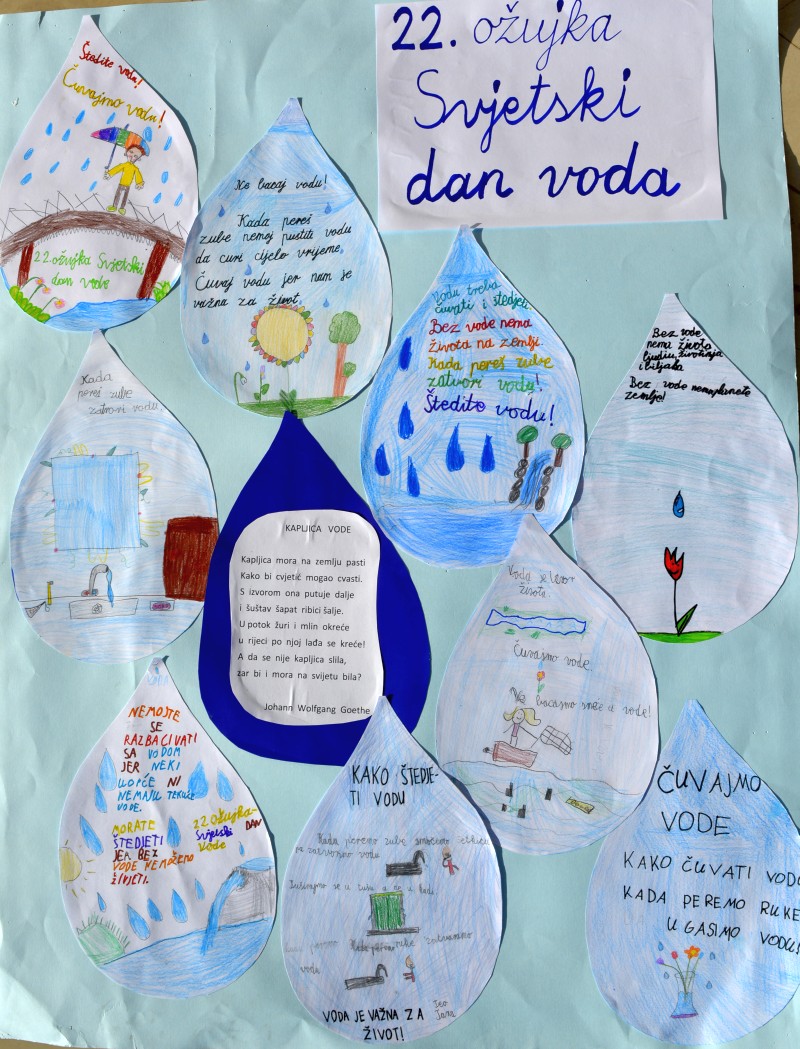 22. ožujka
Svjetski
dan voda
Štedite vodu!
Čuvajmo vodu!
22. ožujka Svjetski
dan vode
Ne bacaj vodu!
Kada pereš
zube nemoj pustiti vodu
da curi cijelo vrijeme.
Čuvaj vodu jer nam je
važna za život.
Vodu treba
čuvati i štedjeti.
Bez vode nema
života na zemlji.
Kada pereš zube
zatvori vodu!
Štedite vodu!
Bez vode
nema života
ljudiu, životinja
i biljaka
Bez vode nema planete
zemlje!
Kada
pereš zube
zatvori vodu.
KAPLJICA VODE
Kapljica mora na zemlju pasti
Kako bi cvjetić mogao cvasti.
S izvorom ona putuje dalje
i šuštav šapat ribici šalje.
U potok žuri i mlin okreće
u rijeci po njoj lađa se kreće!
A da se nije kapljica slila,
zar bi i mora na svijetu bila?
Johann Wolfgang Goethe
Voda je izvor
života.
Čuvajmo vode.
Ne bacajmo smeće u vode!
NEMOJTE
SE
RAZBACIVATI
SA VODOM
JER NEKI
UOPĆE NI
NEMAJU TEKUĆE
VODE.
MORATE
ŠTEDJETI
JER BEZ
VODE NEMOŽEMO
ŽIVJETI.
22. ožujka-
Svjetski DAN
Vode
KAKO ŠTEDJE-
TI VODU
Kada peremo zube
zatvorimo vodu
Tuširajmo se u tušu a ne u kadi.
Kada peremo ruke zatvaramo
vodu
VODA JE VAŽNA ZA
ŽIVOT!
Teo
Jana
ČUVAJMO
VODE
KAKO ČUVATI VODU
KADA PEREMO RUKE
UGASIMO VODU!